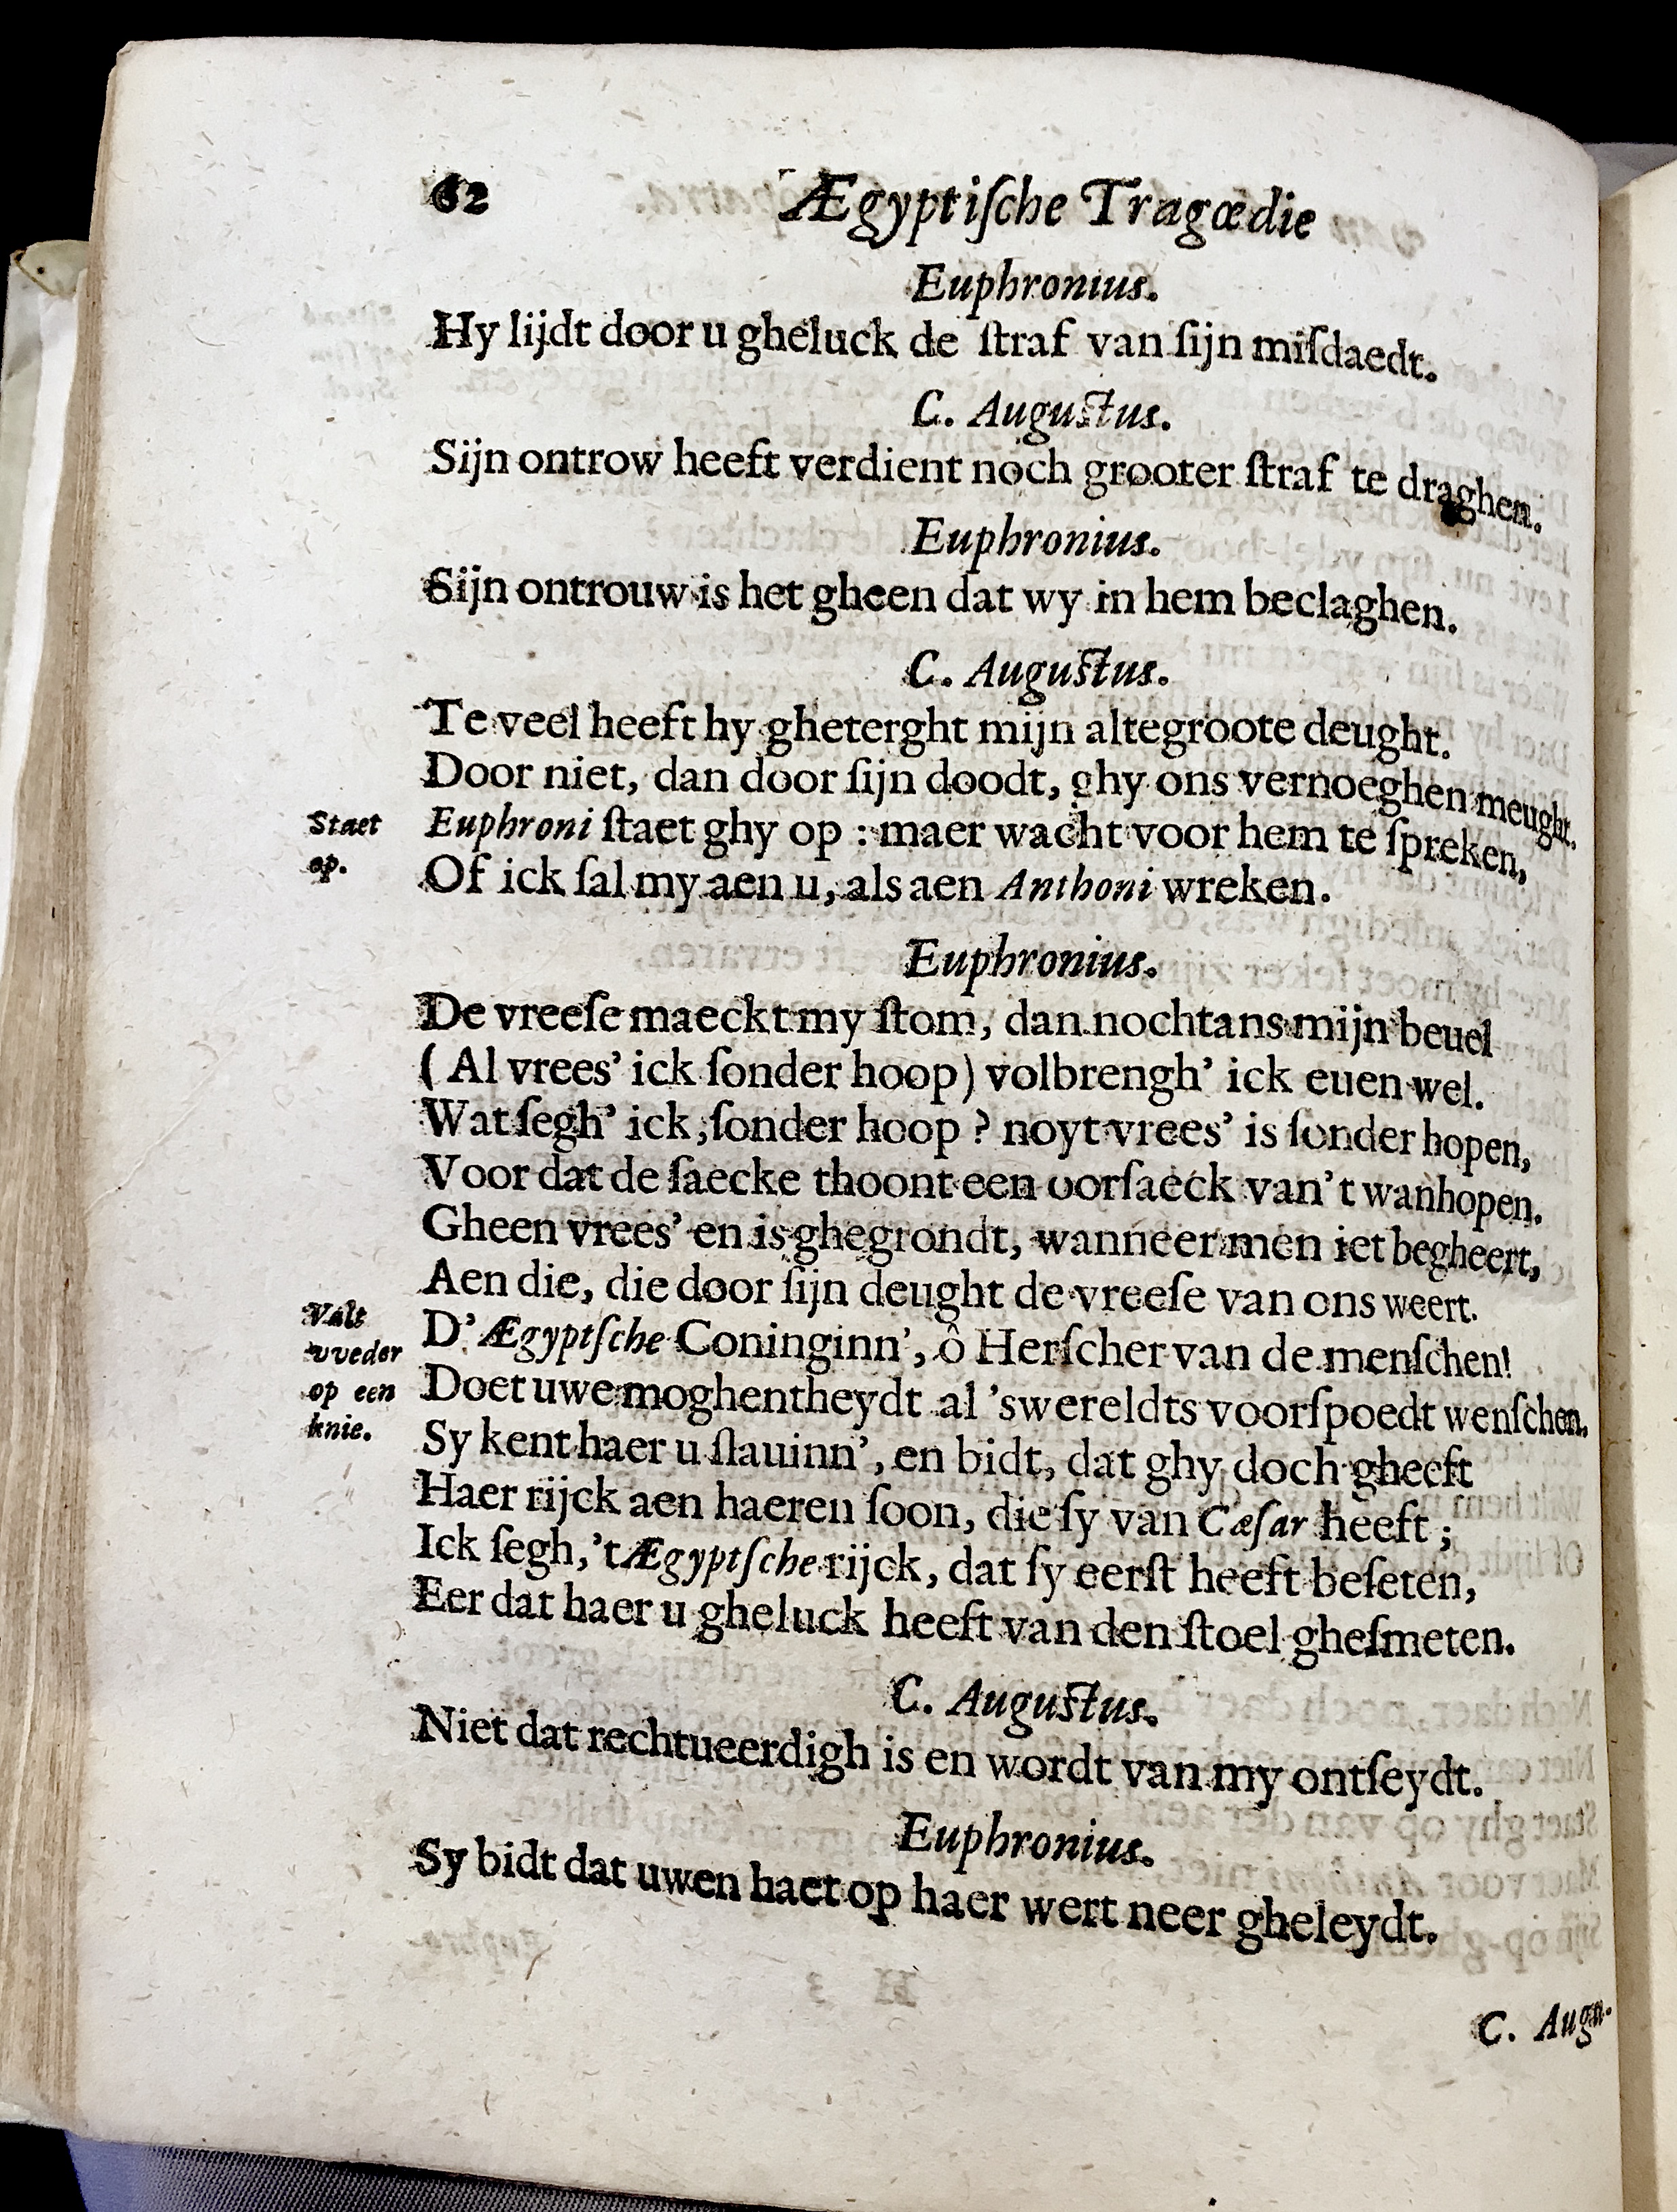 62 Ægyptiſche Tragœdie
Euphronius.
Hy lijdt door u gheluck de ſtraf van ſijn miſdaedt.
C. Auguſtus.
Sijn ontrow heeft verdient noch grooter ſtraf te draghen.
Euphronius.
Sijn ontrouw is het gheen dat wy in hem beclaghen.
C. Auguſtus.
Te veel heeft hy gheterght mijn altegroote deught.
Door niet, dan door ſijn doodt, ghy ons vernoeghen meught.
Staet
op.
Euphroni ſtaet ghy op : maer wacht voor hem te ſpreken,
Of ick ſal my aen u, als aen Anthoni wreken.
Euphronius.
De vreeſe maeckt my ſtom, dan nochtans mijn beuel
(Al vrees’ ick ſonder hoop) volbrengh’ ick euen wel.
Wat ſegh’ ick, ſonder hoop ? noyt vrees’ is ſonder hopen,
Voor dat de ſaecke thoont een oorſaeck van’t wanhopen.
Gheen vrees’ en is ghegrondt, wanneer men iet begheert,
Aen die, die door ſijn deught de vreeſe van ons weert.
Valt
vveder
op een
knie.
D’Ægyptſche Coninginn’, ô Herſcher van de menſchen!
Doet uwe moghentheydt al ’swereldts voorſpoedt wenſchen.
Sy kent haer u ſlauinn’, en bidt, dat ghy doch gheeft
Haer rijck aen haeren ſoon, die ſy van Cæſar heeft ;
Ick ſegh,’t Ægyptſche rijck, dat ſy eerſt heeft beſeten,
Eer dat haer u gheluck heeft van den ſtoel gheſmeten.
C. Auguſtus.
Niet dat rechtueerdigh is en wordt van my ontſeydt.
Euphronius.
Sy bidt dat uwen haet op haer wert neer gheleydt.
C. Augu-